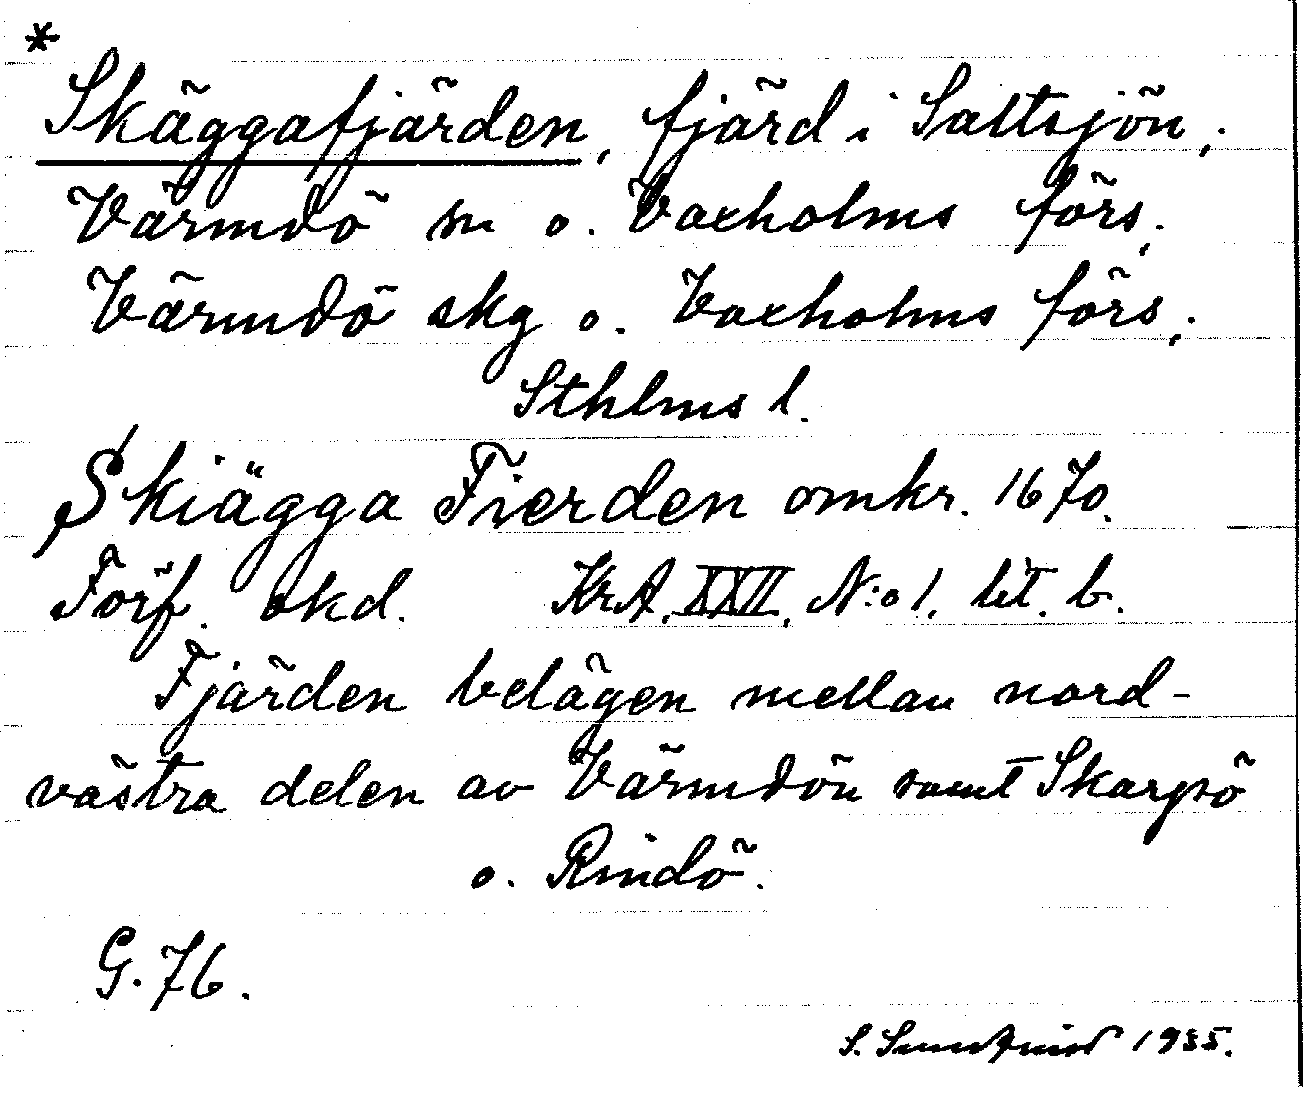 *
Skäggafjärden, fjärd i Saltsjön,
Värmdö sn o. Vaxholms förs,
Värmdö skg o. Vaxholms förs,
Sthlms l.
Skiägga Fierden omkr. 1670.
Förf. okd. KrA, XXII, N:o 1, lit. b.
Fjärden belägen mellan nord-
västra delen av Värmdön samt Skarpö
o. Rindö.
G. 76.
S. 1935.